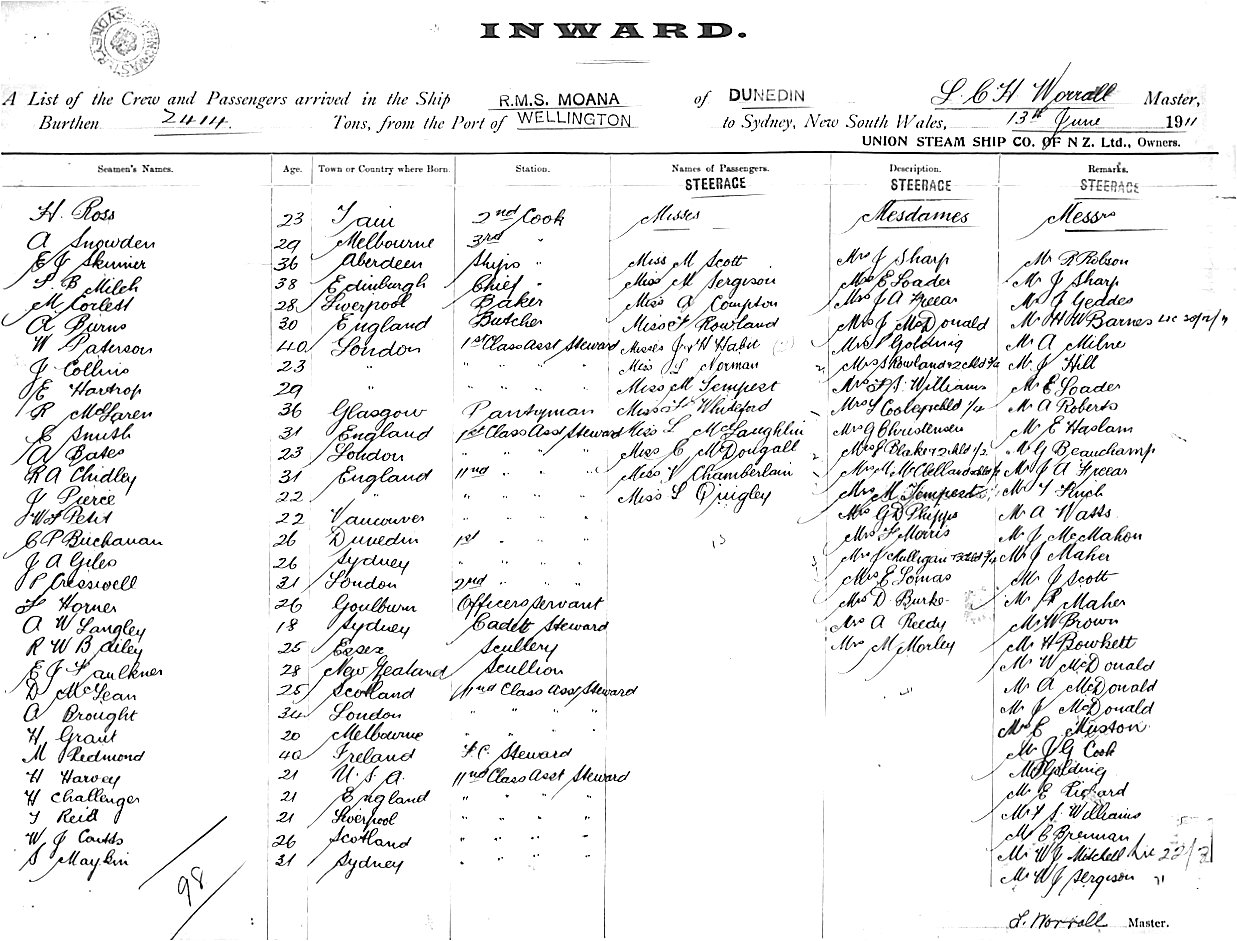 INWARD.
A List of the Crew and Passengers arrived in the Ship R.M.S. MOANA of DUNEDIN L. C H Worrall Master,
Burthen 2414. Tons, from the Port of WELLINGTON to Sydney, New South Wales, 13th June 1911
UNION STEAM SHIP CO. OF N Z. Ltd., Owners.
Seamen's Names. Age. Town or Country where Born. Station. Names of Passengers. Description. Remarks.
STEERACE STEERACE STEERACE
H. Ross 23 Tain 2nd Cook Misses Mesdames Messrs
A Snowden 29 Melbourne 3rd "
E J Skinner 36 Aberdeen Ships " Miss M Scott Mrs J Sharp Mr R Robson
B Milch 38 Edinburgh Chief " Miss M Sergison Mrs E Loader Mr J Sharp
M Corlett 28 Liverpool Baker Miss A Compton Mrs J A Freear Mr J Geddes
A Burns 30 England Butcher Miss F Rowland Mrs J McDonald Mr H W Barnes
W Paterson 40 London 1st Class Asst Steward Misses J & H Mrs Golding Mr A Milne
J Collins 23 " " " " " Miss L Norman Mrs S Rowland & 2 chld Mr J Hill
E Hartrop 29 " " " " " Miss M Tempest Mrs F S Williams Mr E Loader
R McLaren 36 Glasgow Pantryman Miss Whiteford Mrs Mr A Roberts
E Smith 31 England 1st Class Asst Steward Miss L McLaughlin Mrs G Christensen Mr E Haslam
A Bates 23 London " " " " Miss C McDougall Mrs Blake & 2 chld 1/2 Mr G Beauchamp
R A Chidley 31 England 11nd " " " Miss V Chamberlain Mrs M McClelland Mr J A Freear
J Pierce 22 " " " " " Miss L Quigley Mrs M Tempest Mr
W F Petit 22 Vancouver " " " " Mrs G D Phipps Mr A Watts
C P Buchanan 26 Dunedin 1st " " " Mrs F Morris Mr J McMahon
J A Giles 26 Sydney " " " " Mrs J Mulligan Mr J Maher
P Cresswell 31 London 2nd " " " Mrs E Lomas Mr J Scott
F Horner 26 Goulburn Officers Servant Mrs D Burke Mr Maher
A W Langley 18 Sydney Cadet Steward Mrs A Reedy Mr W Brown
R W Bailey 25 Essex Scullery Mrs M Morley Mr H Bowkett
E J Faulkner 28 New Zealand Scullion Mr W McDonald
D McLean 25 Scotland 11nd Class Asst Steward Mr A McDonald
A Brought 34 London " " " " Mr J McDonald
H Grant 20 Melbourne " " " " Mrs E Muston
M Redmond 40 Ireland F.C. Steward Mr J G Cook
H Harvey 21 U.S.A. 11nd Class Asst Steward Mr Golding
H Challenger 21 England " " " " Mr E Rickard
T Reid 21 Liverpool " " " " Mr F S Williams
W J Coutts 26 Scotland " " " " Mr C Brennan
S Maykin 31 Sydney " " " " Mr W J Mitchell
98 Mr W J Sergison "
L. Worrall Master.